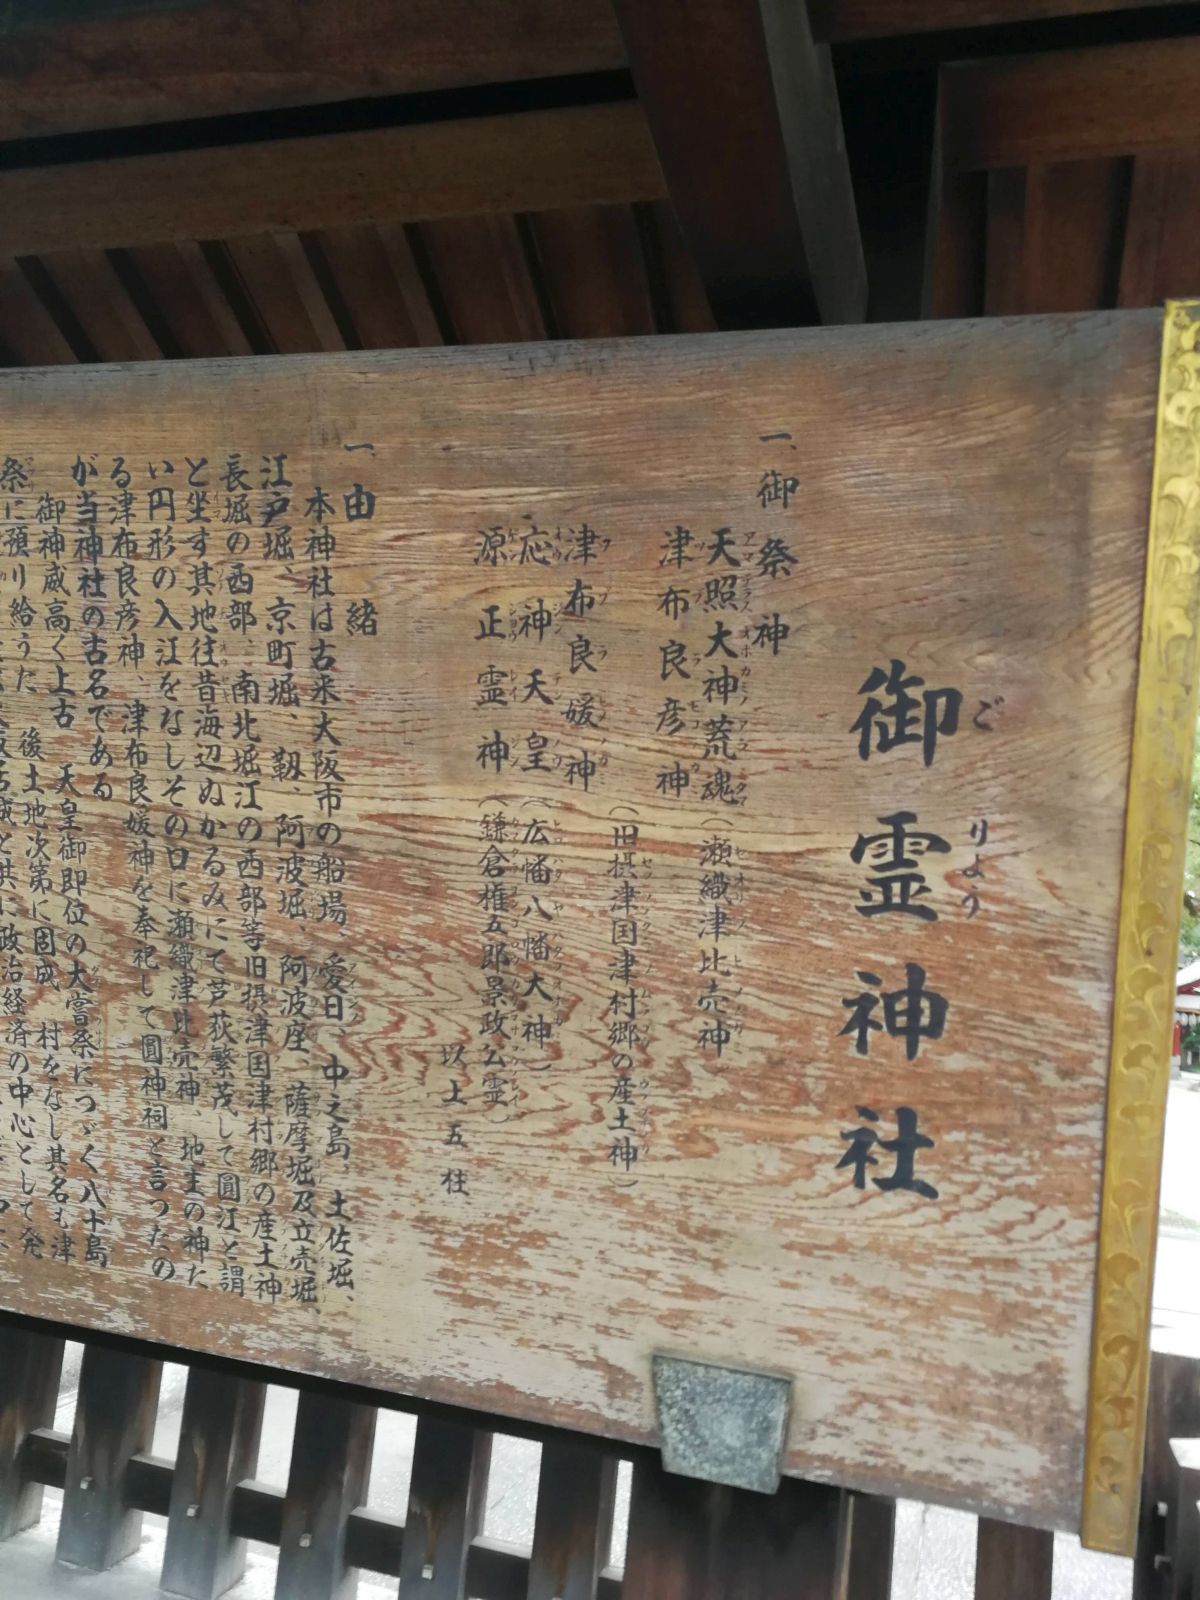 御霊神社
ごりょう
一、御祭神
天照大神荒魂(瀬織津比売神)
津布良彦神
(旧摂津国津村郷の産土神)
津布良媛神
応神天皇(広幡八幡大神)
源正霊神(鎌倉権五郎景政公霊)
以上五柱
一、由緒
本神社は古来大阪市の船場、愛日、中之島、土佐堀、
江戸堀、京町堀、靱、阿波堀、阿波座、薩摩堀及立売堀、
長堀の西部 南北堀江の西部等旧摂津国津村郷の産土神
と坐す其地往昔海辺ぬかるみにて芦荻繁茂して圓江と謂
い円形の入江をなしその口に瀬織津比売神、地主の神た
る津布良彦神、津布良媛神を奉祀して圓神祠と言ったの
が当神社の古名である
御神威高く上古 天皇御即位の大嘗祭につゞく八十島
祭に預り給うた 後土地次第に固成 村をなし其名も津